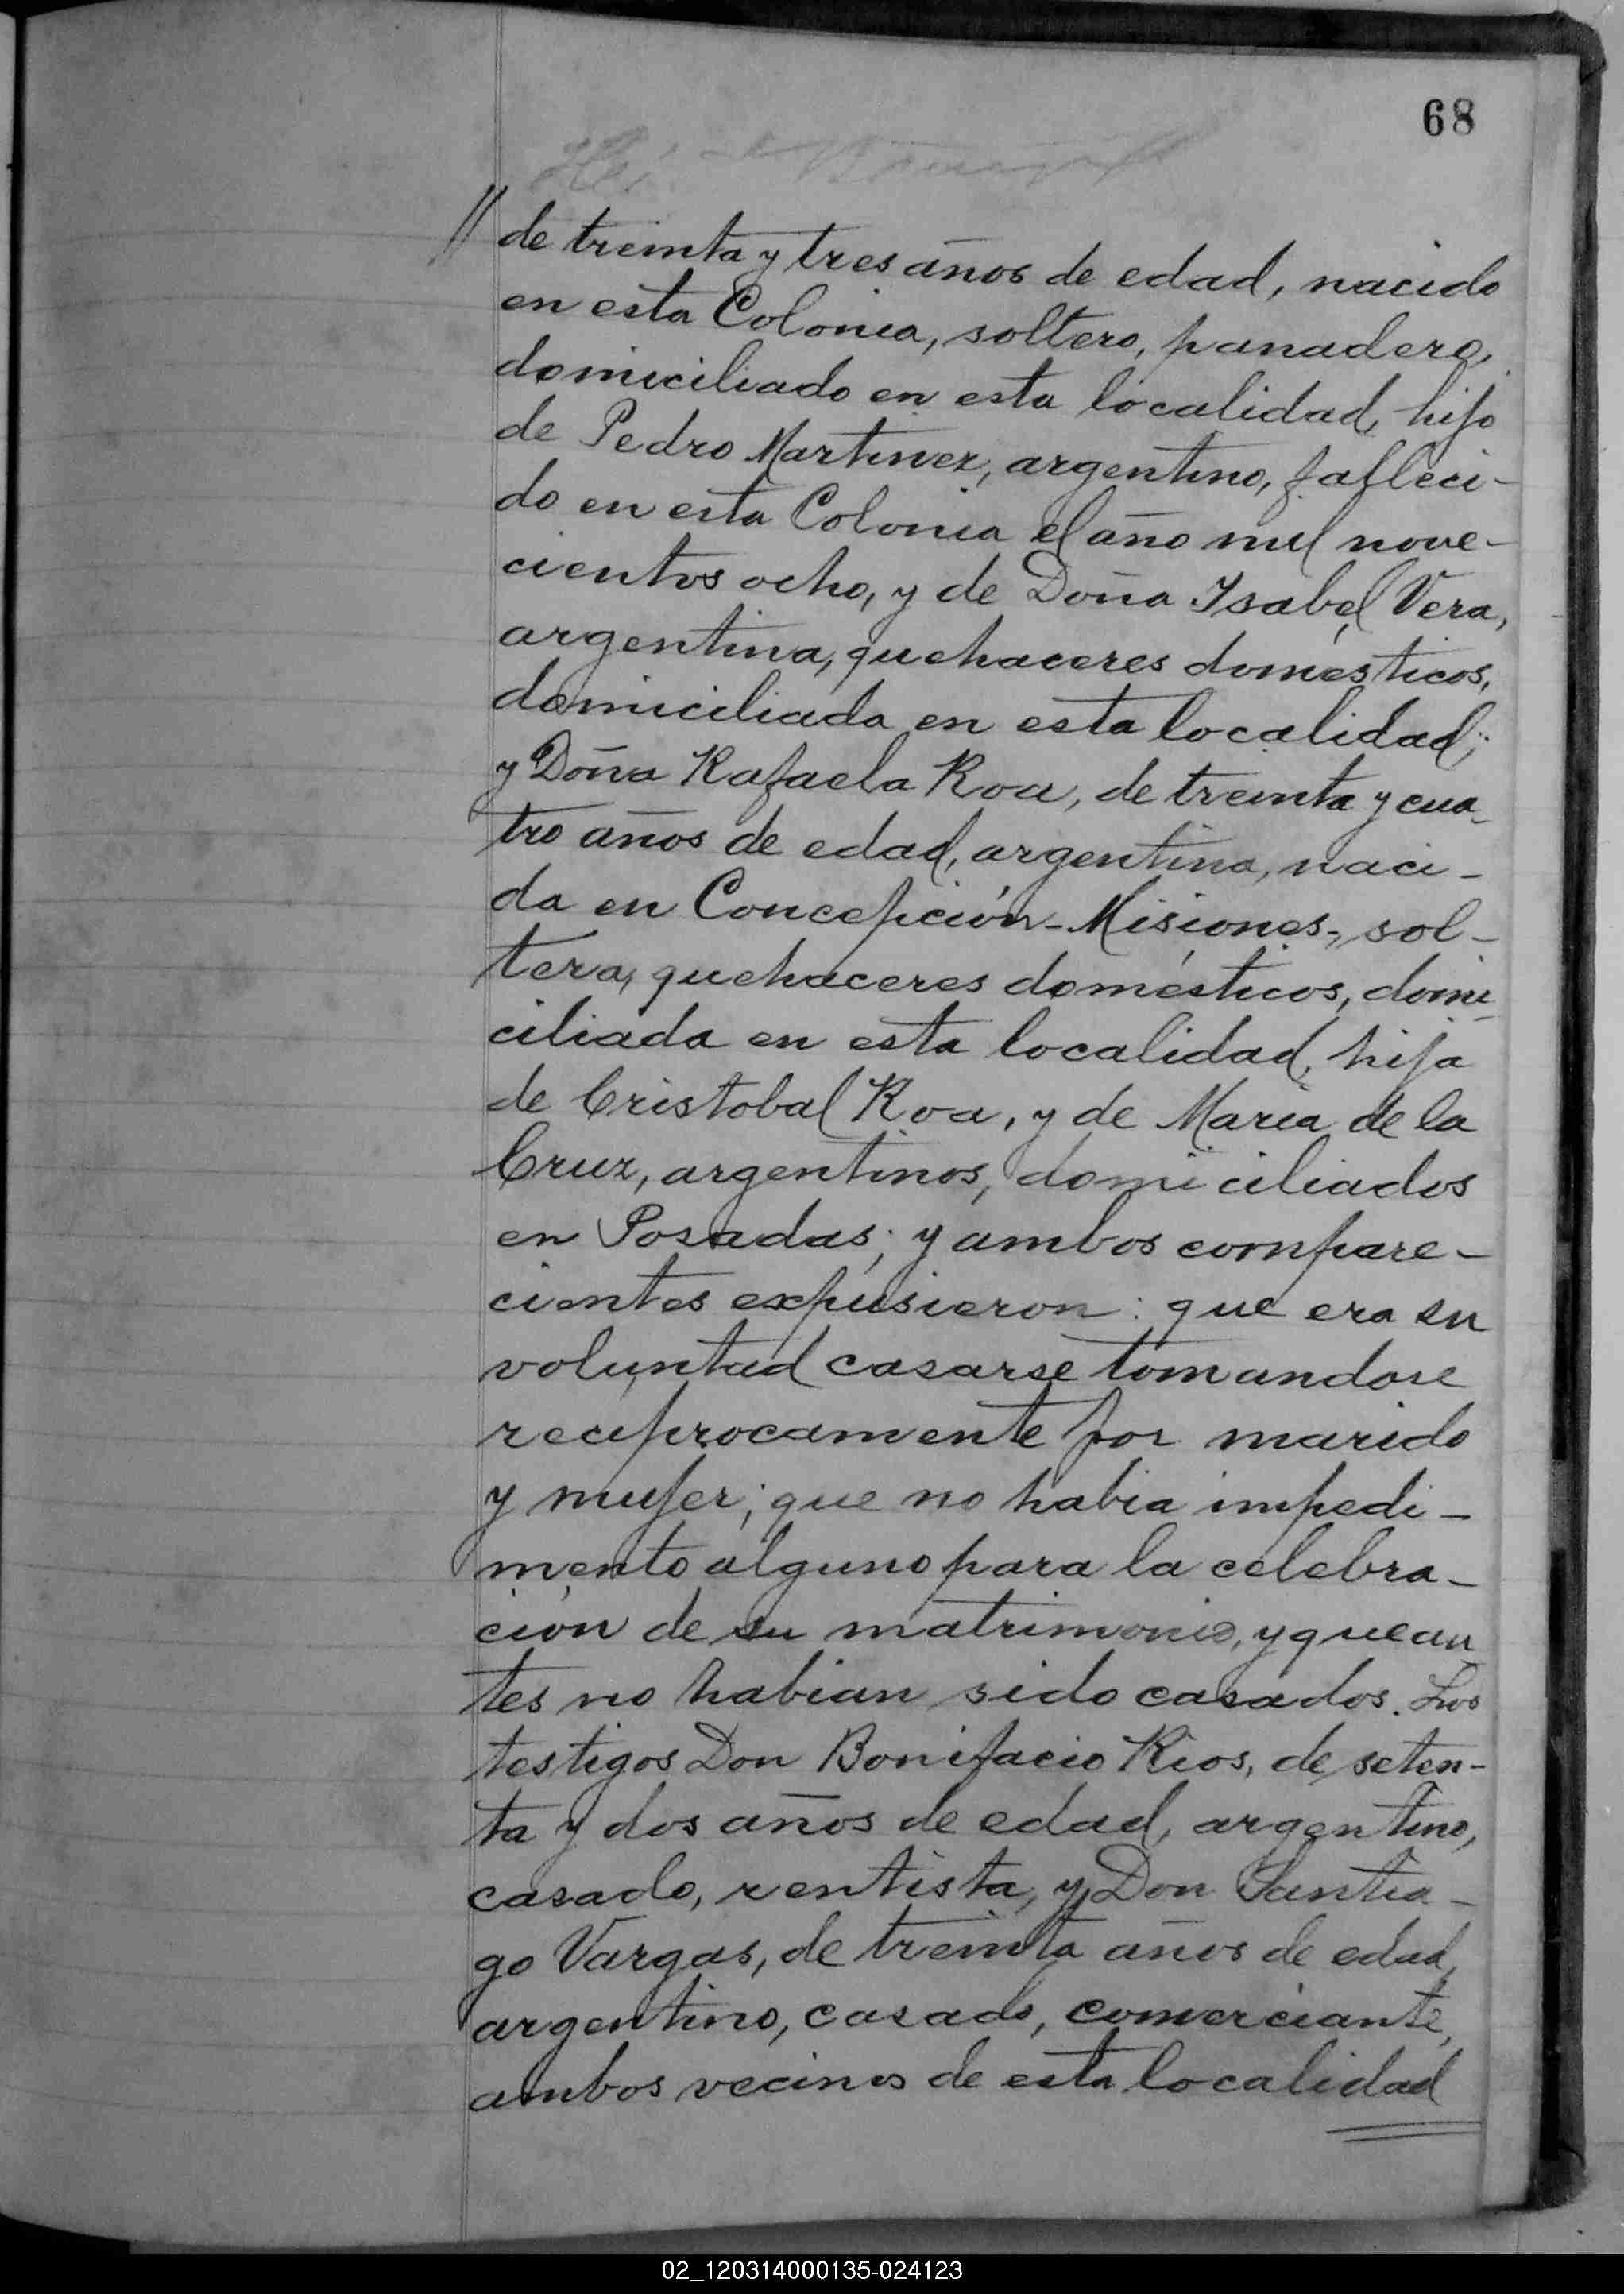 68
// de treinta y tres años de edad, nacido
en esta Colonia, soltero, panadero,
domiciliado en esta localidad, hijo
de Pedro Martinez, argentino, falleci-
do en esta Colonia el año mil nove-
cientos ocho, y de Doña Ysabel Vera,
argentina, quehaceres domésticos,
domiciliada en esta localidad;
y Doña Rafaela Roa, de treinta y cua-
tro años de edad, argentina, naci-
da en Concepción-Misiones-, sol-
tera, quehaceres domésticos, domi-
ciliada en esta localidad, hija
de Cristobal Roa, y de Maria de la
Cruz, argentinos, domiciliados
en Posadas; y ambos compare-
cientes expusieron: que era su
voluntad casarse tomandose
reciprocamente por marido
y mujer; que no habia impedi-
mento alguno para la celebra-
ción de su matrimonio, y que an
tes no habian sido casados. Los
testigos Don Bonifacio Rios, de seten-
ta y dos años de edad, argentino,
casado, rentista, y Don Santia-
go Vargas, de treinta años de edad,
argentino, casado, comerciante,
ambos vecinos de esta localidad
02_120314000135-024123